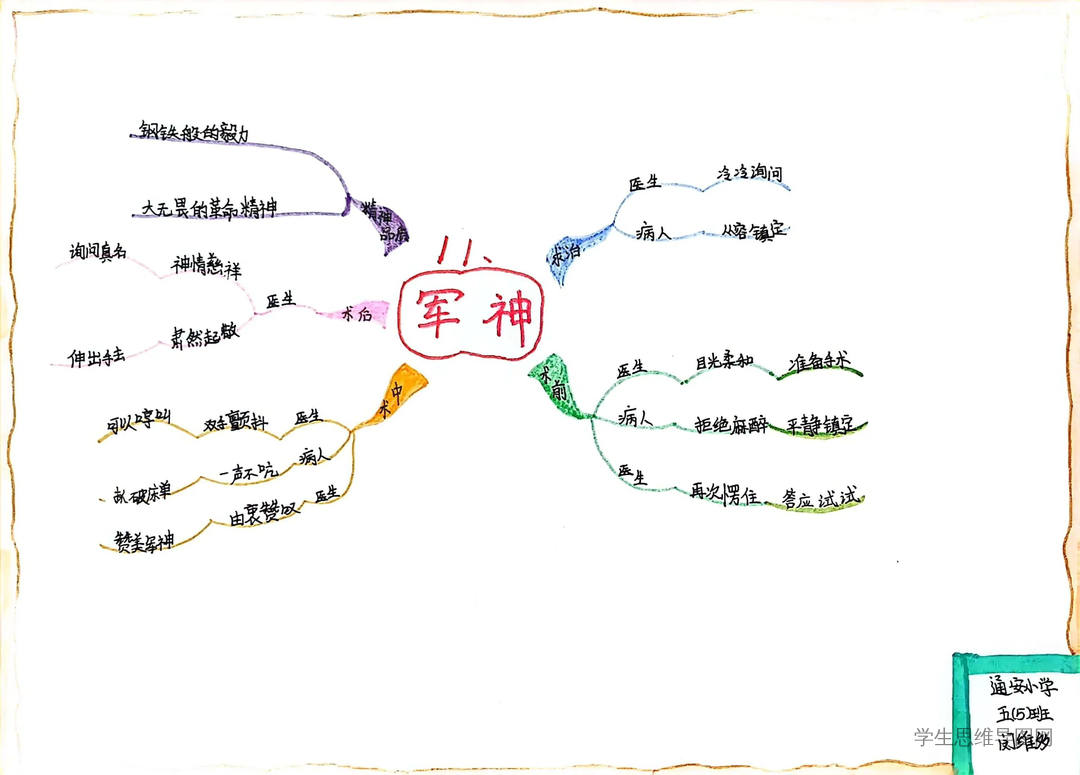 11、
军神
求治
医生
冷冷询问
病人
从容镇定
术前
医生
目光柔和
准备手术
病人
拒绝麻醉
平静镇定
医生
再次愣住
答应试试
术中
医生
双手颤抖
可以哼叫
病人
一声不吭
扒破床单
医生
由衷赞叹
赞美军神
术后
医生
神情慈祥
询问真名
肃然起敬
伸出手去
精神
品质
钢铁般的毅力
大无畏的革命精神
通安小学
五(5)班
学生思维导图网